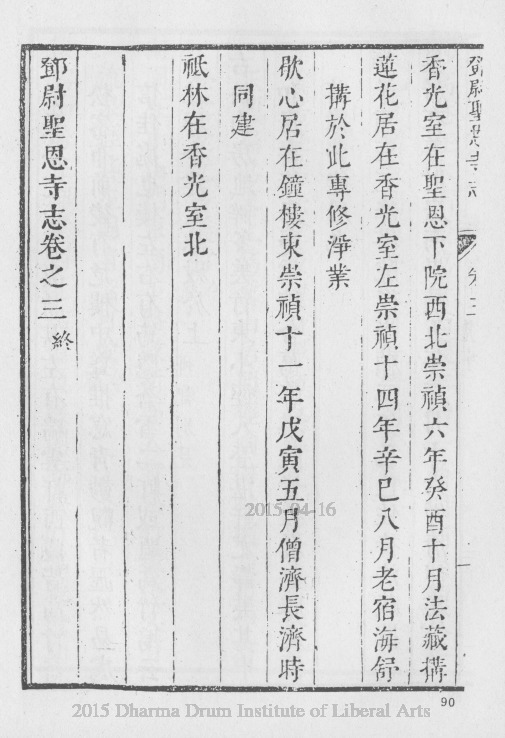 鄧尉聖恩寺志
卷三
香光室在聖恩下院西北崇禎六年癸酉十月法藏搆
蓮花居在香光室左崇禎十四年辛巳八月老宿海舒
搆於此專修淨業
歇心居在鐘樓東崇禎十一年戊寅五月僧濟長濟時
同建
祗林在香光室北
鄧尉聖恩寺志卷之三 終
2015-04-16
90
2015 Dharma Drum Institute of Liberal Arts